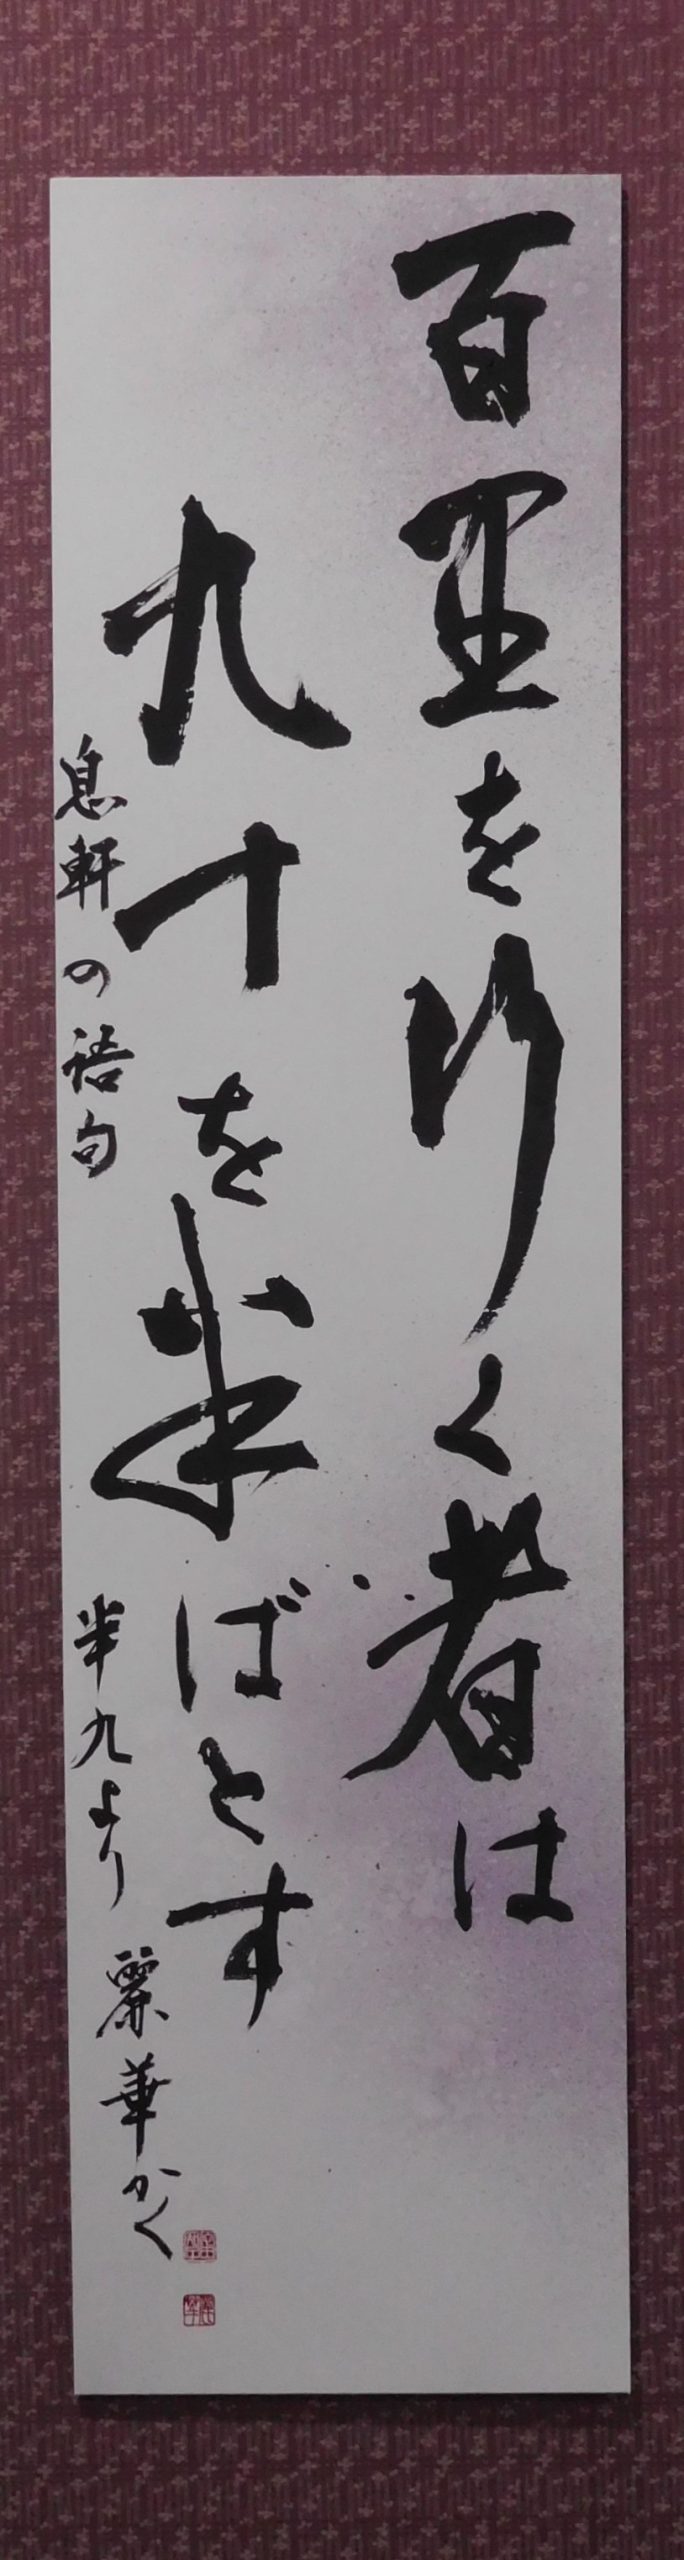 百里を行く者は
九十を半ばとす
息軒の語句
半九より 麗華かく